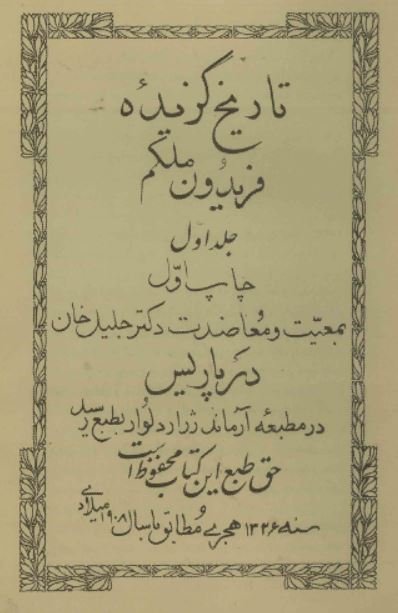 تاریخ گزیدهٔ
فریدون ملکم
جلد اوّل
چاپ اوّل
بمعیّت و مُعاضدت دکتر جلیل خان
در پاریس
در مطبعه آرماند ژرارد لوار بطبع رسید
حق طبع این کتاب محفوظ است
سنه ۱۳۲۶ هجری مُطابق با سال ۱۹۰۸ میلادی